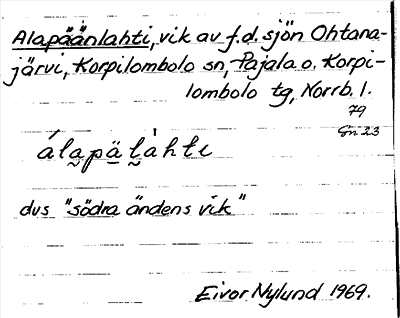 Alapäänlahti, vik av f.d. sjön Ohtana-
järvi, Korpilombolo sn, Pajala o. Korpi-
lombolo tg, Norrb. l.
79
Gn 23
álapälàhti
dvs "södra ändens vik"
Eivor Nylund 1969.